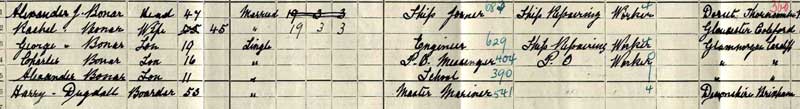 Alexander J. Bonar Head 47 Married 19 3 3 Ship Joiner 084 Ship Repairing Worker Dorset
Rachel " Bonar Wife 45 " 19 3 3 Gloucester Coleford
George " Bonar Son 19 Single Engineer 629 Ship Repairing Worker Glamorgan Cardiff
Charles " Bonar Son 16 " P.O. Messenger 404 P.O Worker " "
Alexander Bonar Son 11 " School 390 " "
Harry - Dugdall Boarder 53 " Master Mariner 541 Devonshire Brixham